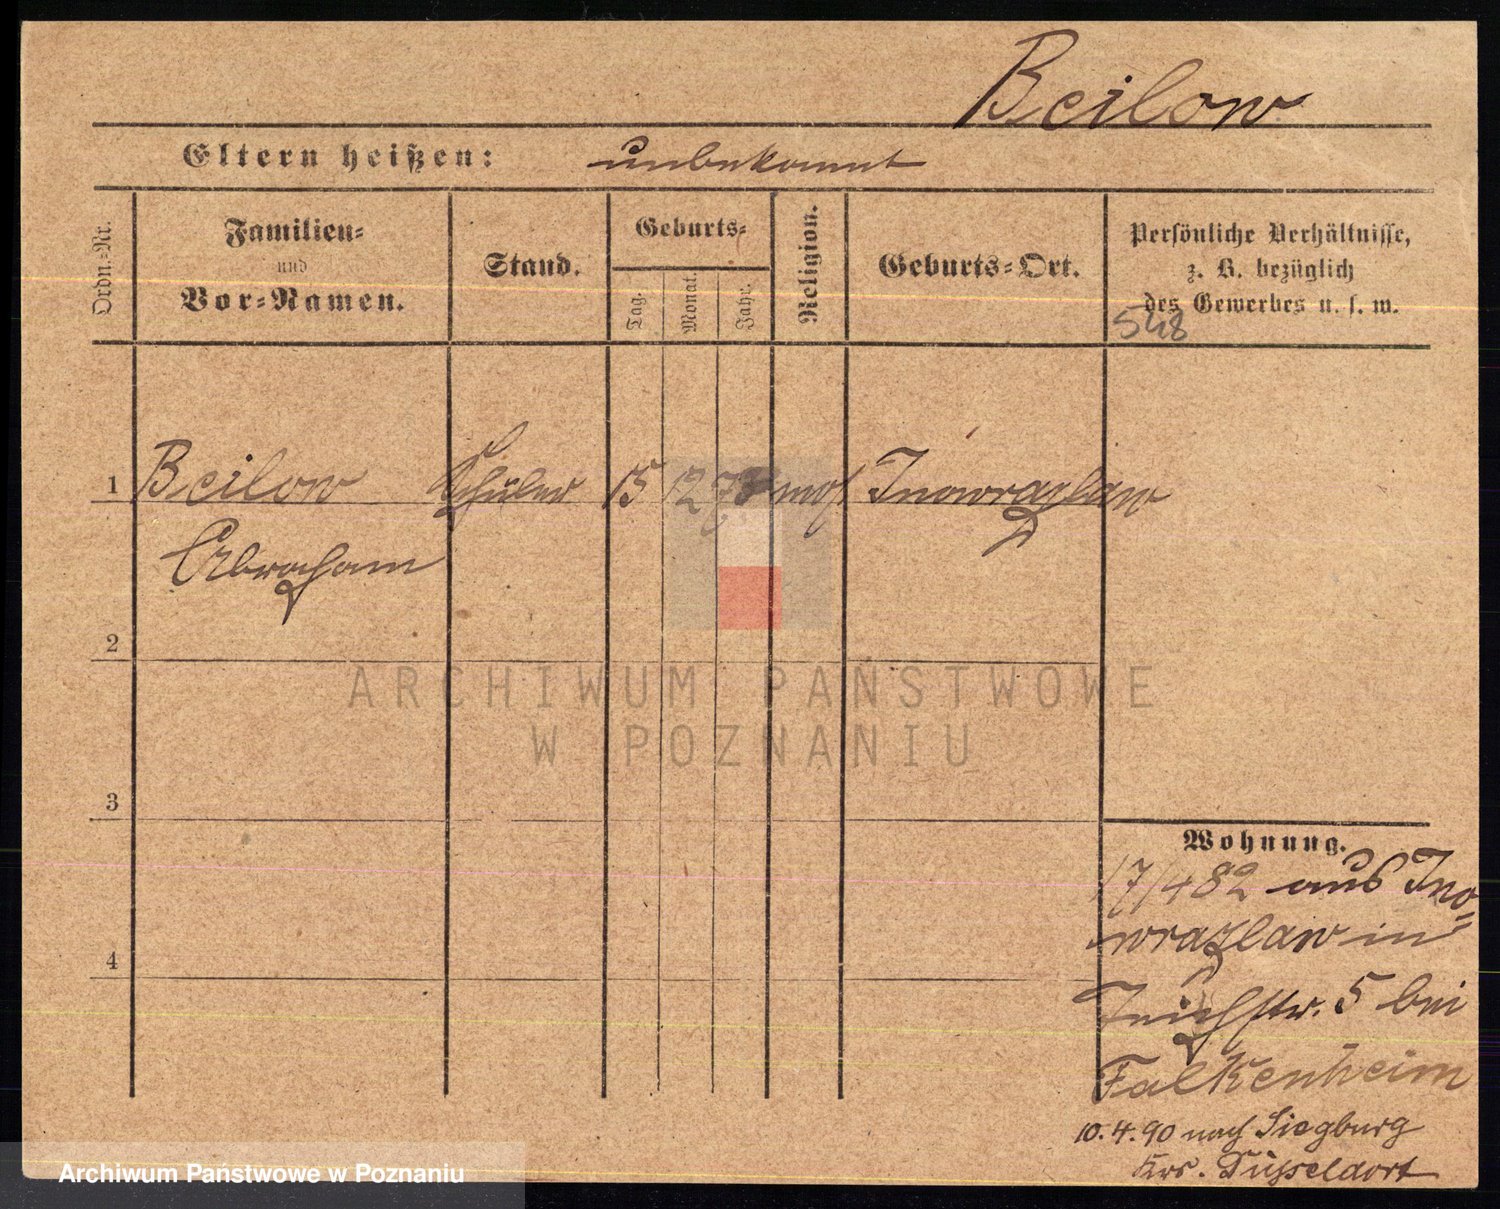 Beilow
Eltern heißen: unbekannt
Ordn.-Nr.
Familien-
und
Vor-Namen.
Stand.
Geburts-
Tag.
Monat.
Jahr.
Religion.
Geburts-Ort.
Persönliche Verhältnisse,
z. B. bezüglich
des Gewerbes u. s. w.
548
1 Beilow Schüler 15 12 73 mos Inowrazlaw
Abraham
2
3
4
ARCHIWUM PAŃSTWOWE
W POZNANIU
Wohnung.
17/4 82 aus Ino-
wrazlaw in
Teichstr. 5 bei
Falkenheim
10.4.90 nach Siegburg
Krs. Düsseldorf
Archiwum Państwowe w Poznaniu